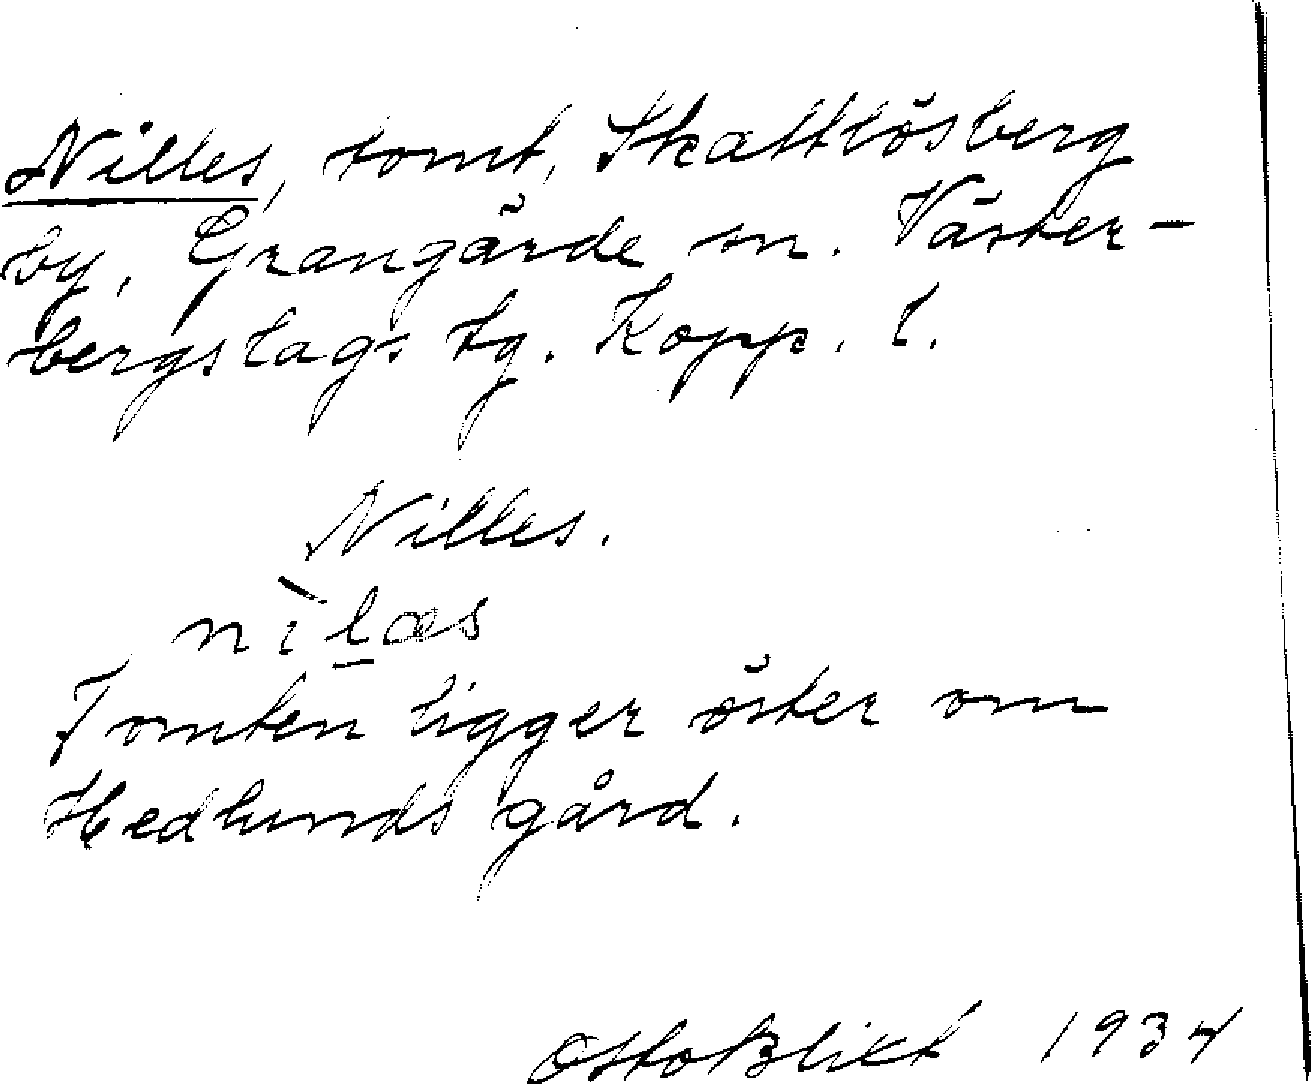 Nilles, tomt, Skattlösberg
by, Grangärde sn. Väster-
bergslags tg. Kopp. l.
Nilles.
nìlæs
Tomten ligger öster om
Hedlunds gård.
Otto Blixt 1934